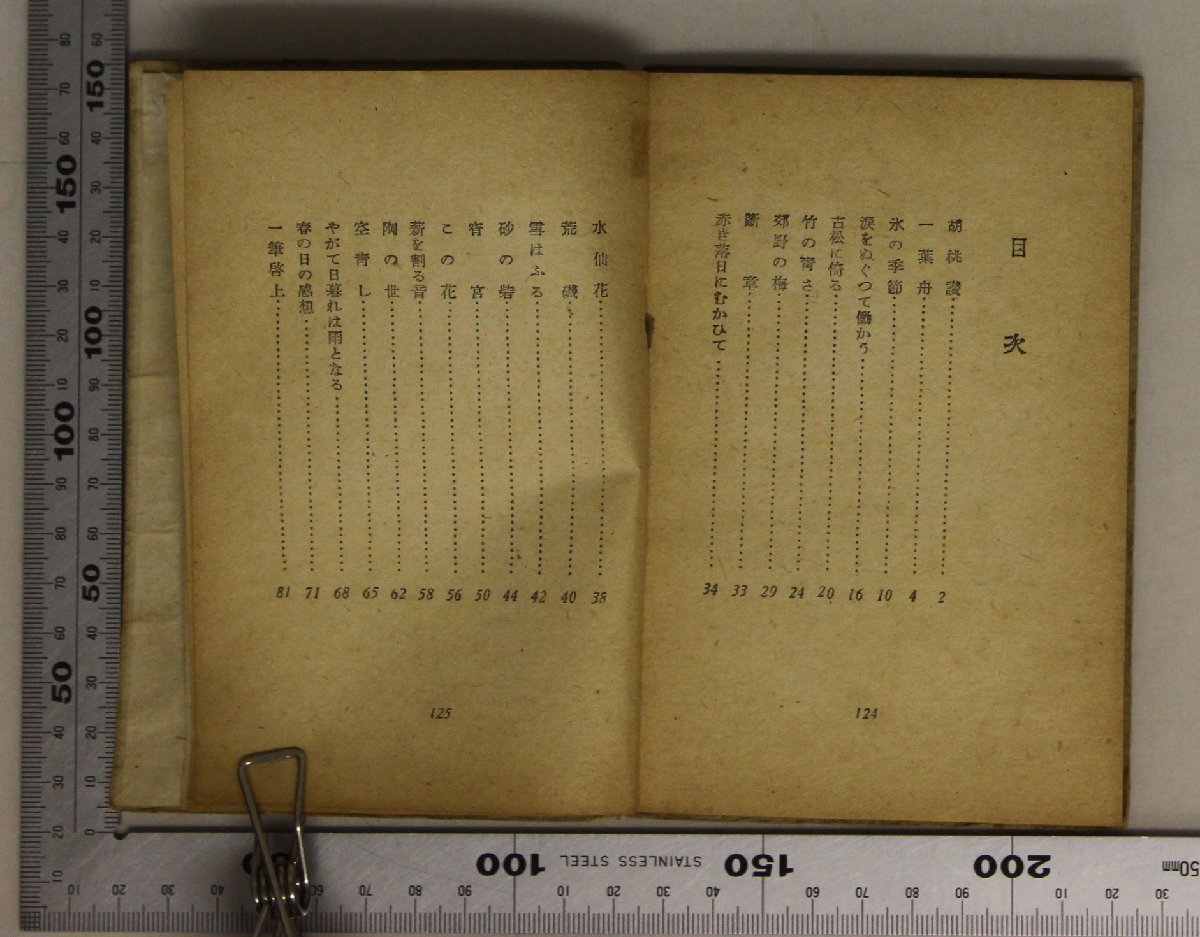 目次
胡桃讃 2
一葉舟 4
氷の季節 10
涙をぬぐつて働かう 16
古松に倚る 20
竹の青さ 24
郊野の梅 29
斷章 33
赤き落日にむかひて 34
124
水仙花 38
荒磯 40
雪はふる 42
砂の砦 44
宵宮 50
この花 56
薪を割る音 58
陶の世 62
空青し 65
やがて日暮れは雨となる 68
春の日の感想 71
一筆啓上 81
125
STAINLESS STEEL
50
100
150
50
100
150
100
150
200
50mm